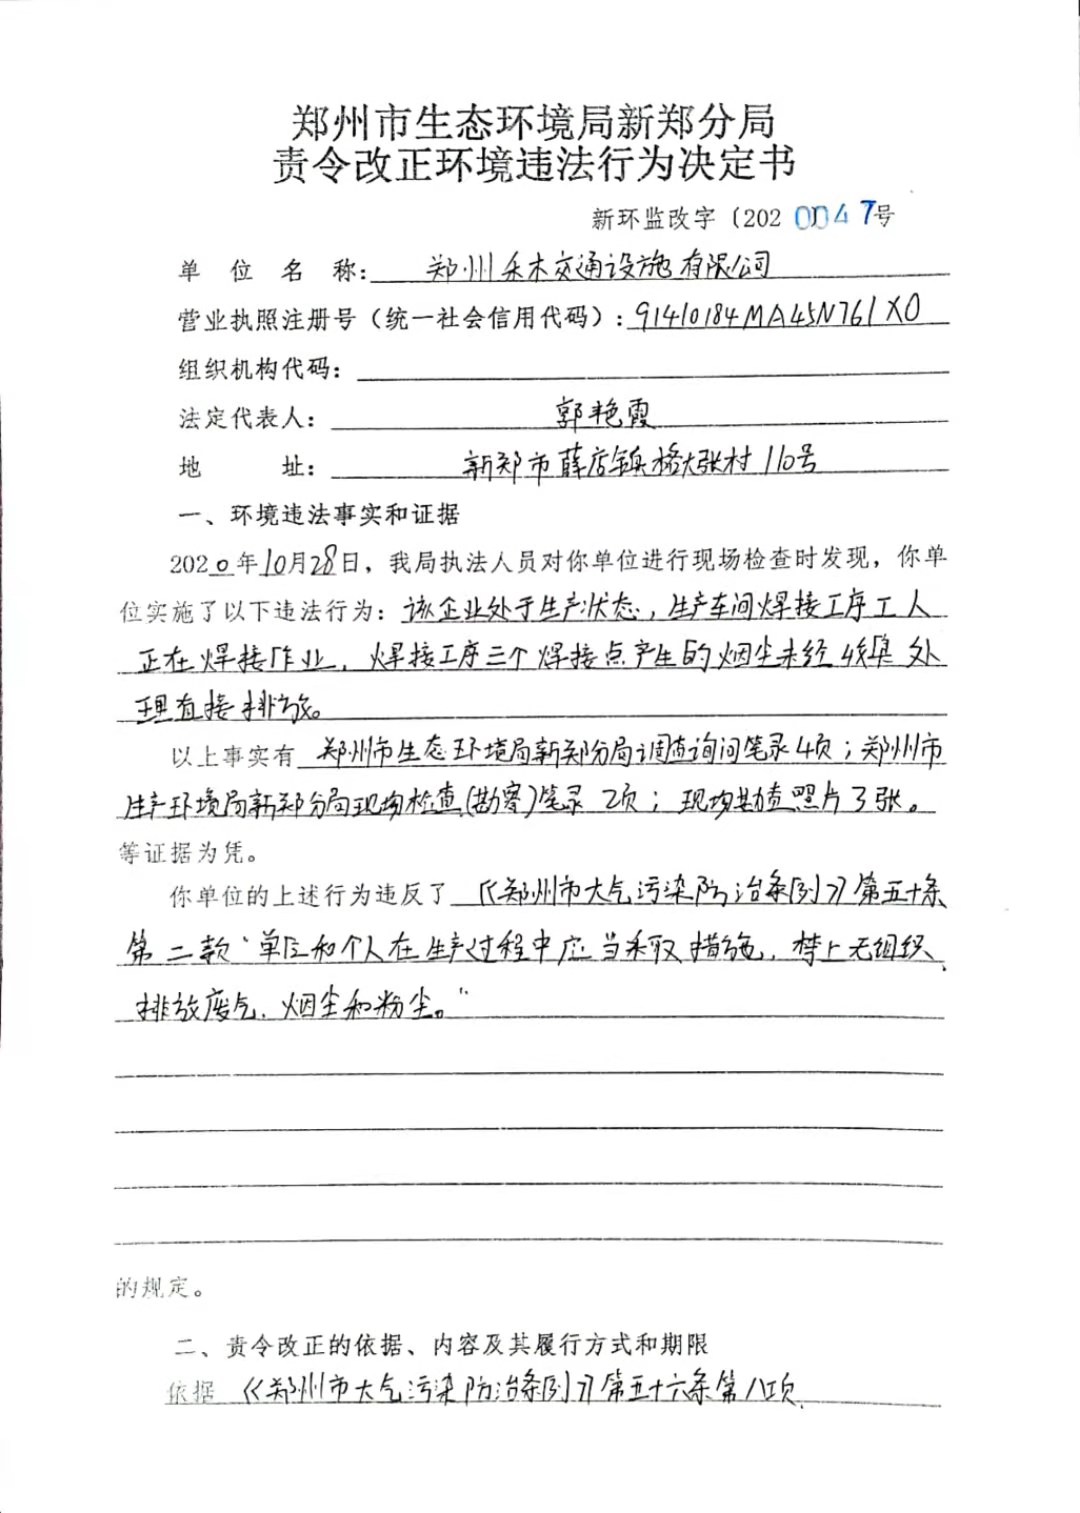 郑州市生态环境局新郑分局
责令改正环境违法行为决定书
新环监改字〔202 0047号
单位名称：郑州禾木交通设施有限公司
营业执照注册号（统一社会信用代码）：91410184MA45N761X0
组织机构代码：
法定代表人：郭艳霞
地址：新郑市薛店镇大张村110号
一、环境违法事实和证据
2020年10月28日，我局执法人员对你单位进行现场检查时发现，你单
位实施了以下违法行为：该企业处于生产状态，生产车间焊接工序工人
正在焊接作业，焊接工序三个焊接点产生的烟尘未经收集处
理直接排放。
以上事实有 郑州市生态环境局新郑分局调查询问笔录4页；郑州市
生产环境局新郑分局现场检查(勘察)笔录2页；现场勘查照片3张。
等证据为凭。
你单位的上述行为违反了《郑州市大气污染防治条例》第五十条
第二款“单位和个人在生产过程中应当采取措施，禁止无组织
排放废气、烟尘和粉尘。”
的规定。
二、责令改正的依据、内容及其履行方式和期限
依据《郑州市大气污染防治条例》第五十六条第八项